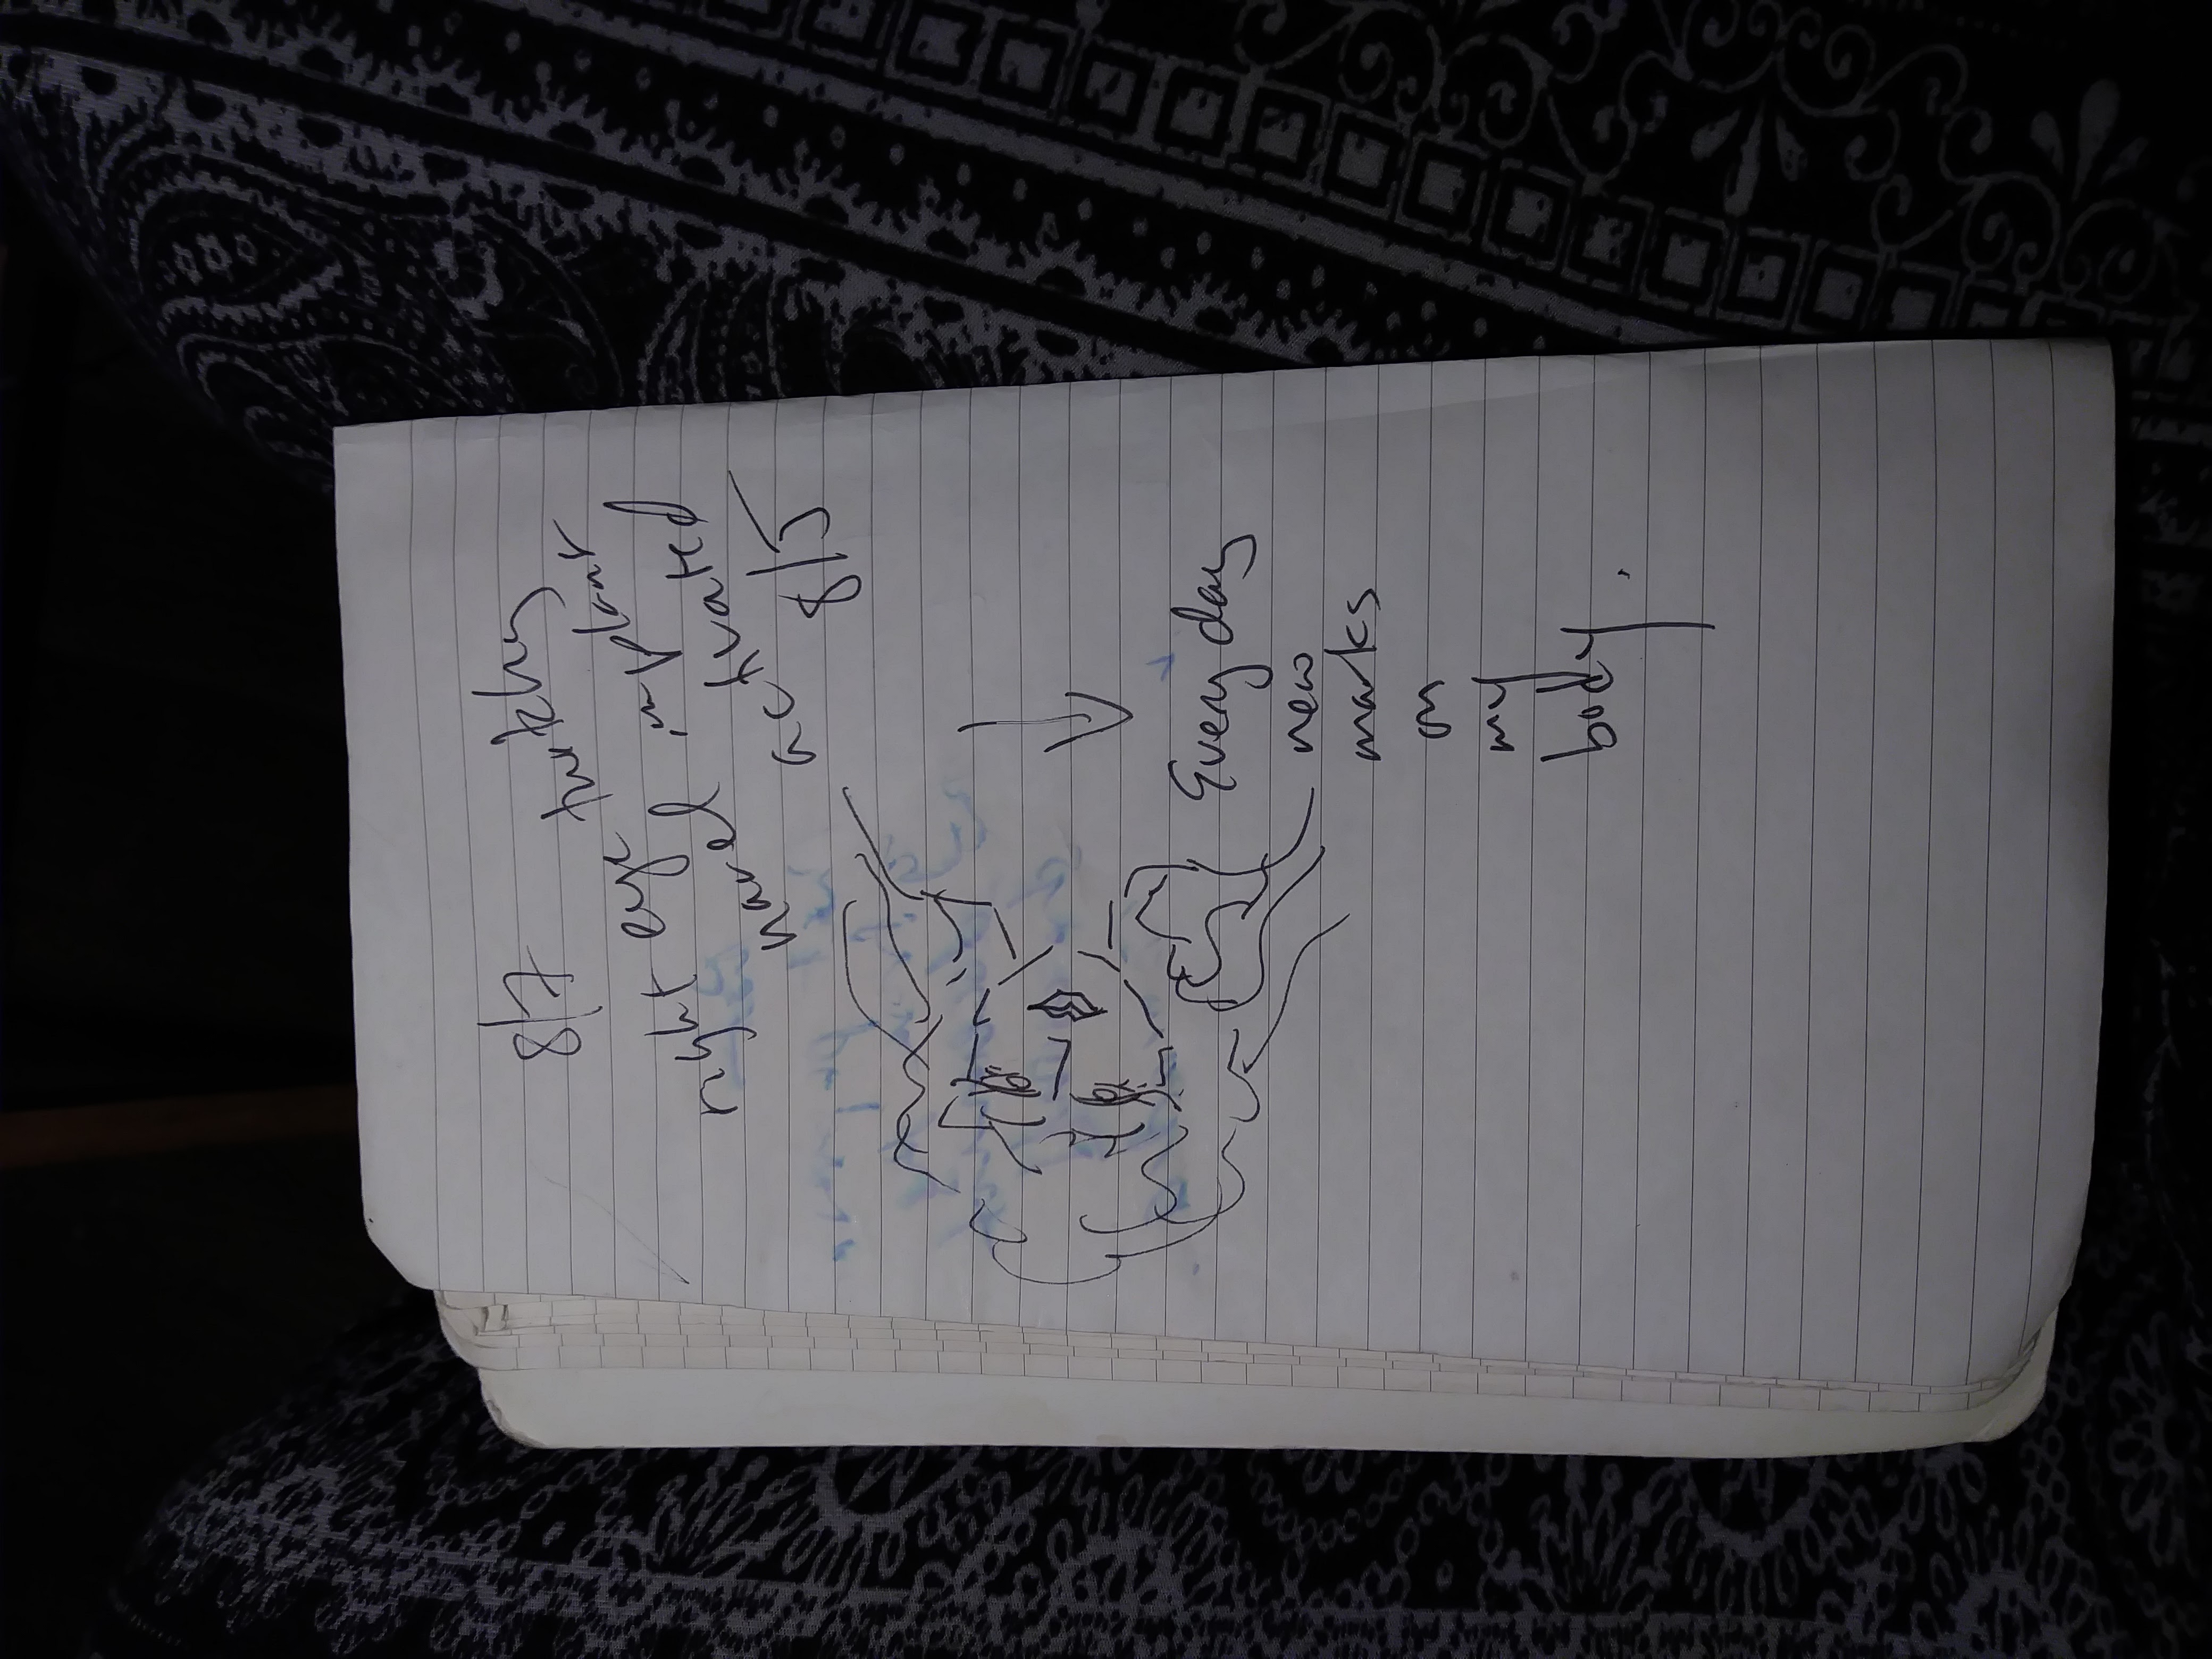 8/7 turkey
right eye implant
navel activated
8/5
Every day
new
marks
on
my
body.